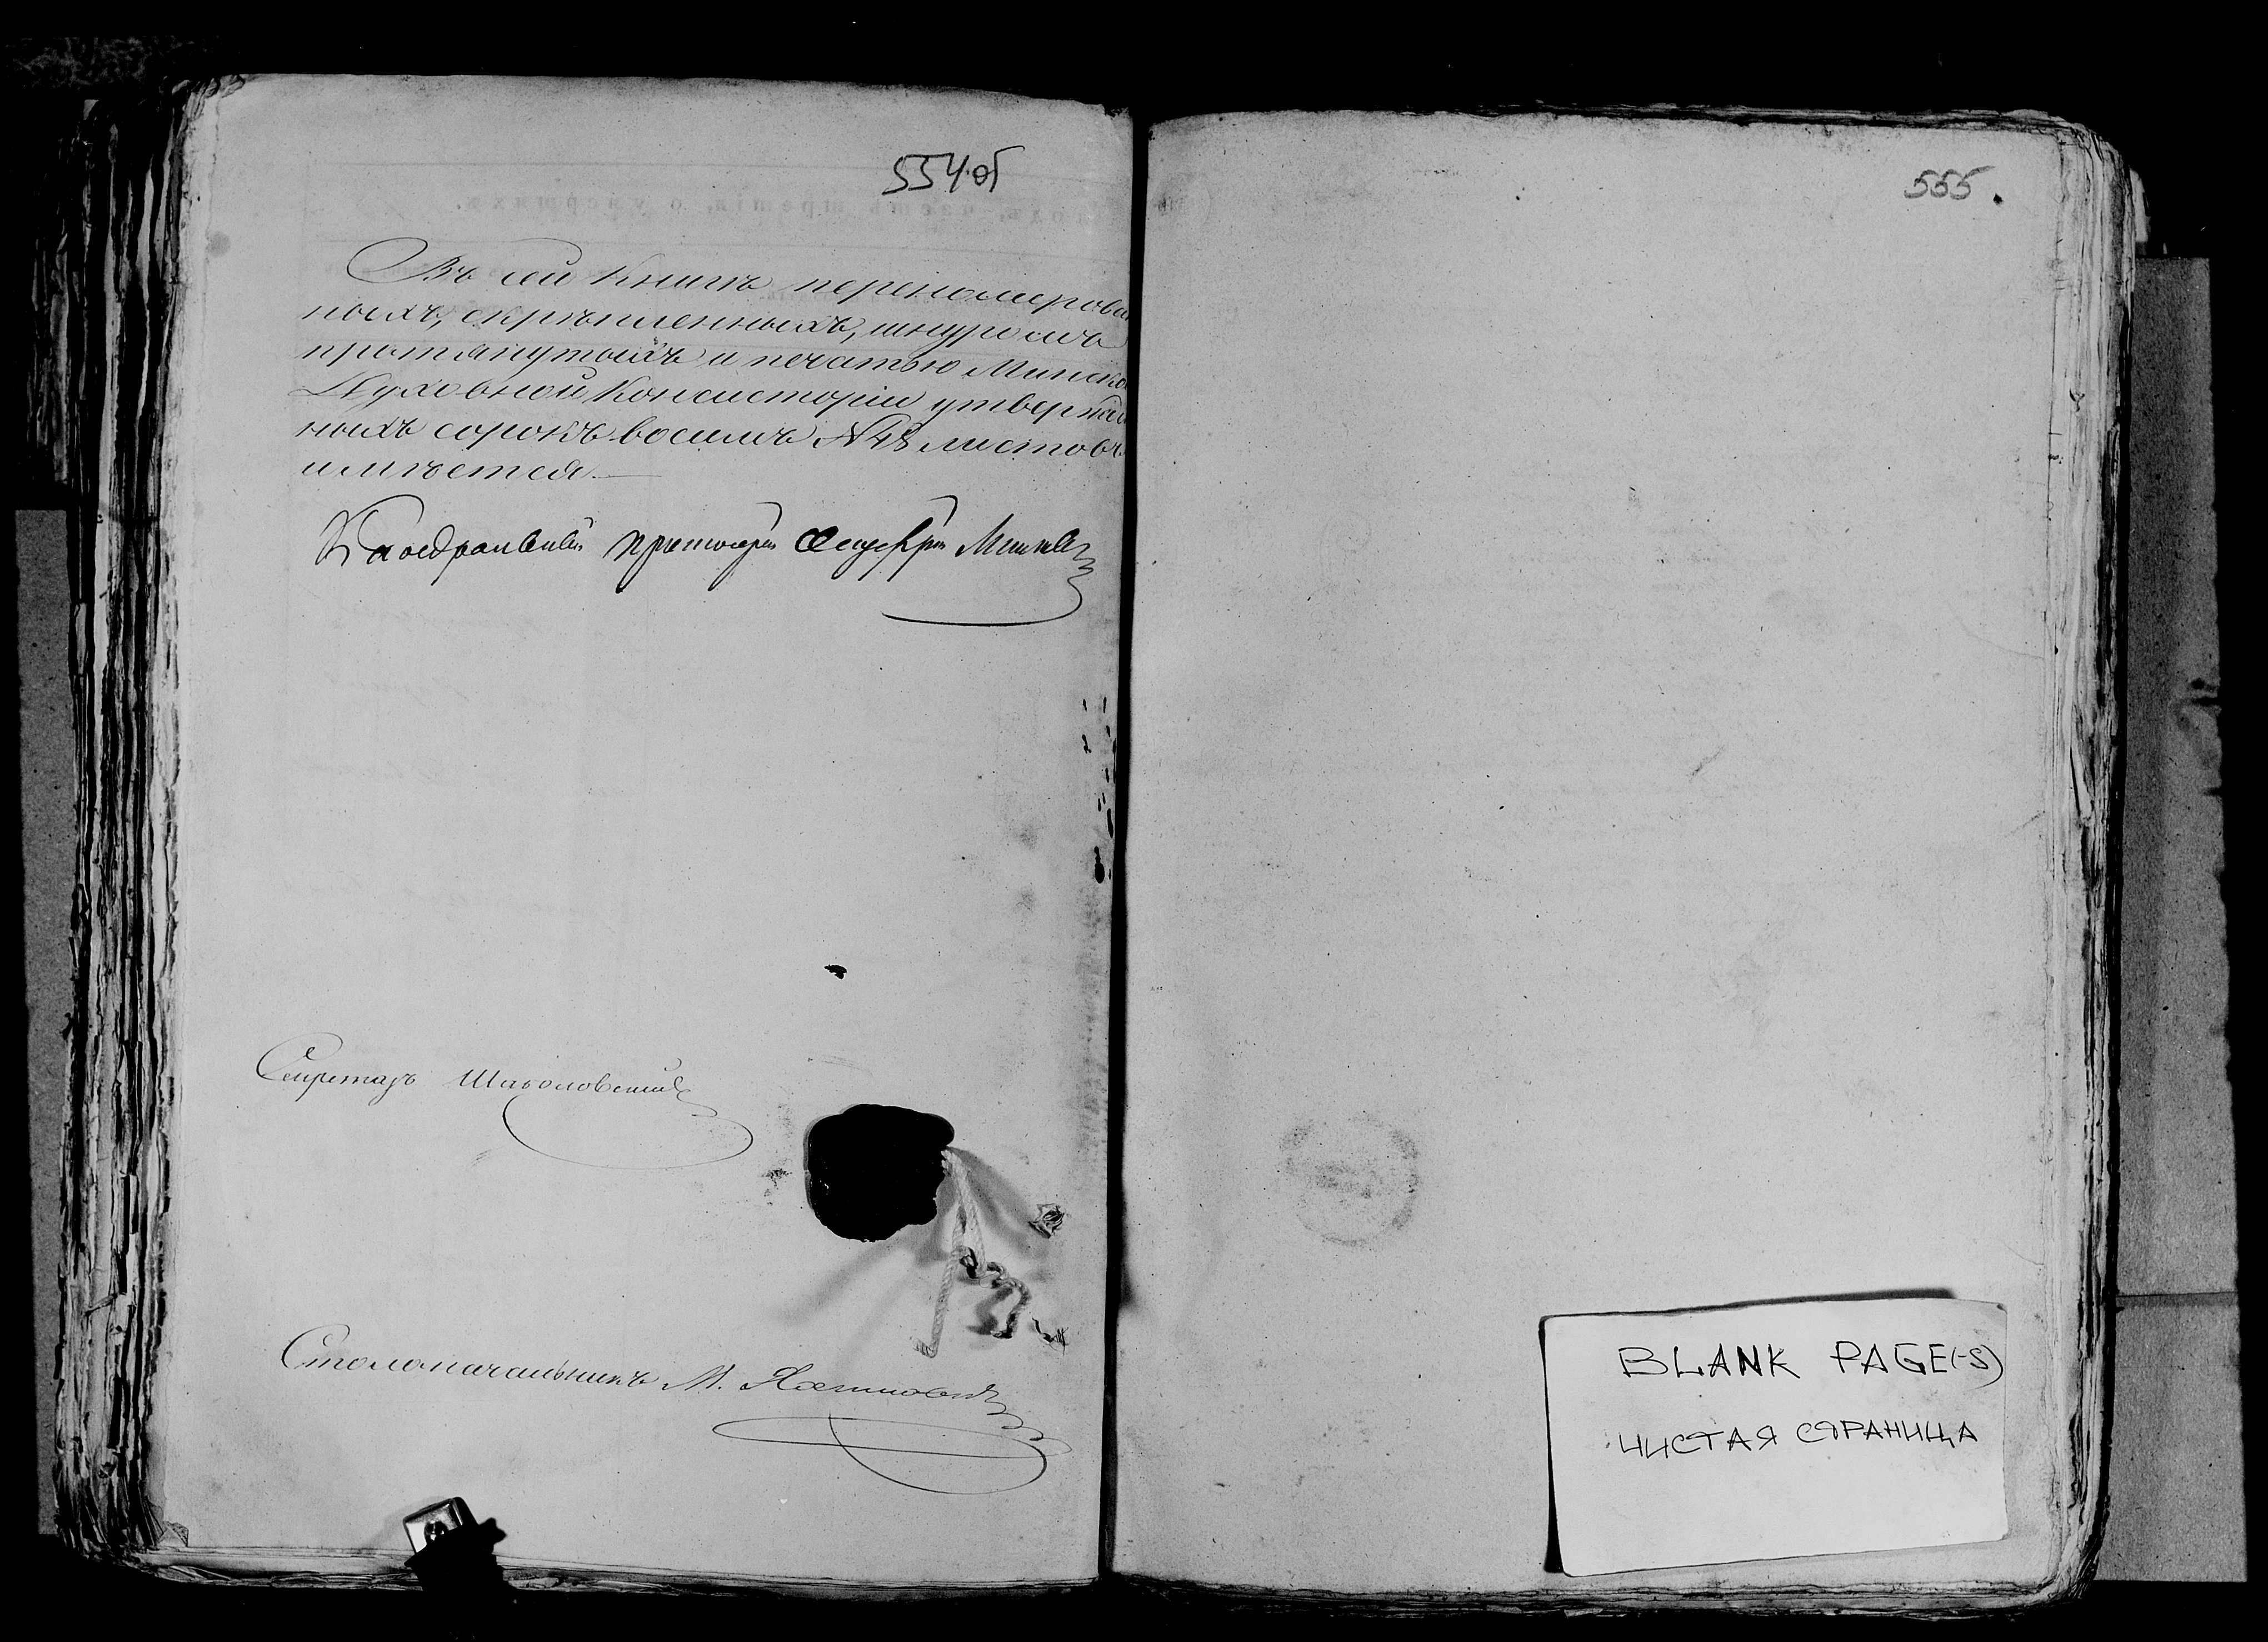 554 об
Въ сей книгѣ перенумерован
ныхъ, скрѣпленныхъ, шнуромъ
протянутыхъ и печатью Минско
Духовной Консисторіи утвержде
ныхъ сорокъ восемь № 48 листовъ
имѣется.
Каѳедральный протоіерей
Секретарь
Столоначальникъ М.
555.
BLANK PAGE(-S)
ЧИСТАЯ СТРАНИЦА